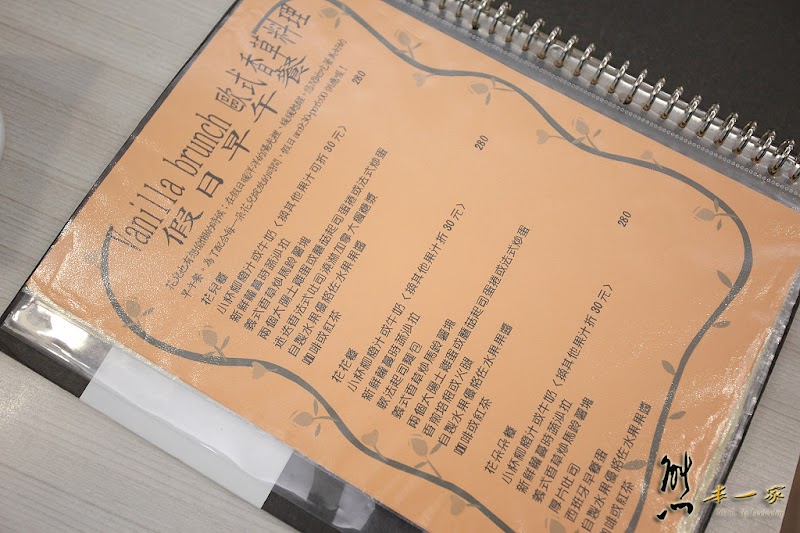 Vanilla brunch 歐式香草料理
假日早午餐
花兒餐 280
小杯柳橙汁或牛奶（換其他果汁可折30元）
新鮮蘿蔓時蔬沙拉
義式香草炒馬鈴薯塊
兩個太陽土雞蛋或蘑菇起司蛋捲或法式炒蛋
法式吐司
自製水果優格佐水果果醬
咖啡或紅茶
花花餐 280
小杯柳橙汁或牛奶（換其他果汁折30元）
新鮮蘿蔓時蔬沙拉
軟法起司麵包
義式香草炒馬鈴薯塊
兩個太陽土雞蛋或蘑菇起司蛋捲或法式炒蛋
香煎培根或火腿
自製水果優格佐水果果醬
咖啡或紅茶
花朵朵餐 280
小杯柳橙汁或牛奶（換其他果汁折30元）
新鮮蘿蔓時蔬沙拉
義式香草炒馬鈴薯塊
厚片吐司
西班牙烘蛋
自製水果優格佐水果果醬
咖啡或紅茶
熊
半一家